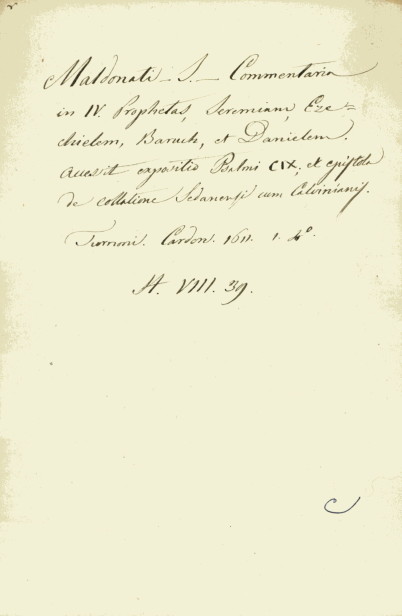 Maldonati - S. - Commentaria
in IV. Prophetas, Jeremiam, Eze=
chielem, Baruch, et Danielem.
Accessit expositio Psalmi CIX, et epistola
de collatione Sedanensi cum Calvinianis.
Turnoni. Cardon. 1611. 1. 4º.
H. VIII. 39.